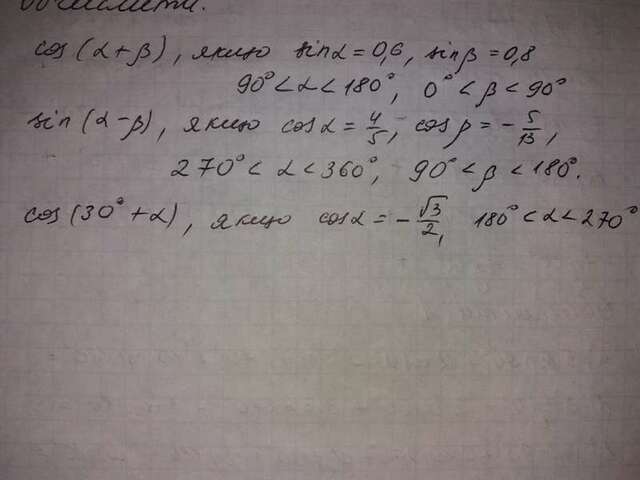 cos(α+β), якщо sinα=0,6, sinβ=0,8
90°<α<180°, 0°<β<90°
sin(α-β), якщо cosα=4/5, cosβ=-5/13,
270°<α<360°, 90°<β<180°.
cos(30°+α), якщо cosα=-√3/2, 180°<α<270°